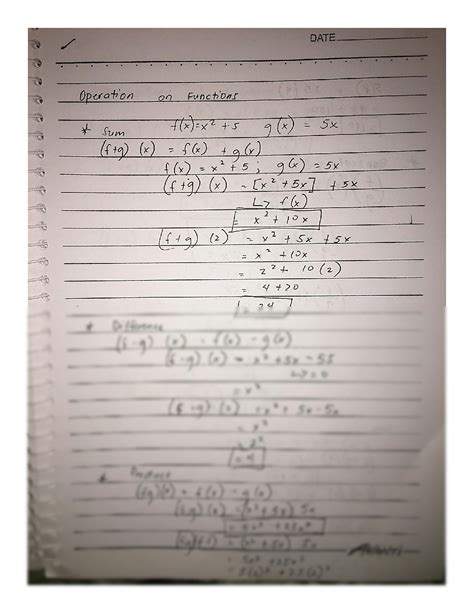 DATE
Operation on Functions
* Sum f(x)=x² + 5 g(x) = 5x
(f+g) (x) = f(x) + g(x)
f(x) = x² + 5 ; g(x) = 5x
(f+g) (x) = [x² + 5x] + 5x
↳ f(x)
= x² + 10x
(f+g) (2) = x² + 5x + 5x
= x² + 10x
= 2² + 10(2)
= 4 + 20
= 24
* Difference
(f-g) (x) = f(x) - g(x)
(f-g) (x) = x² + 5x - 5
= x²
(f-g) (2) = x² + 5x - 5x
= x²
= 2²
= 4
* Product
(fg)(x) = f(x) - g(x)
(fg)(x) = (x² + 5x) 5x